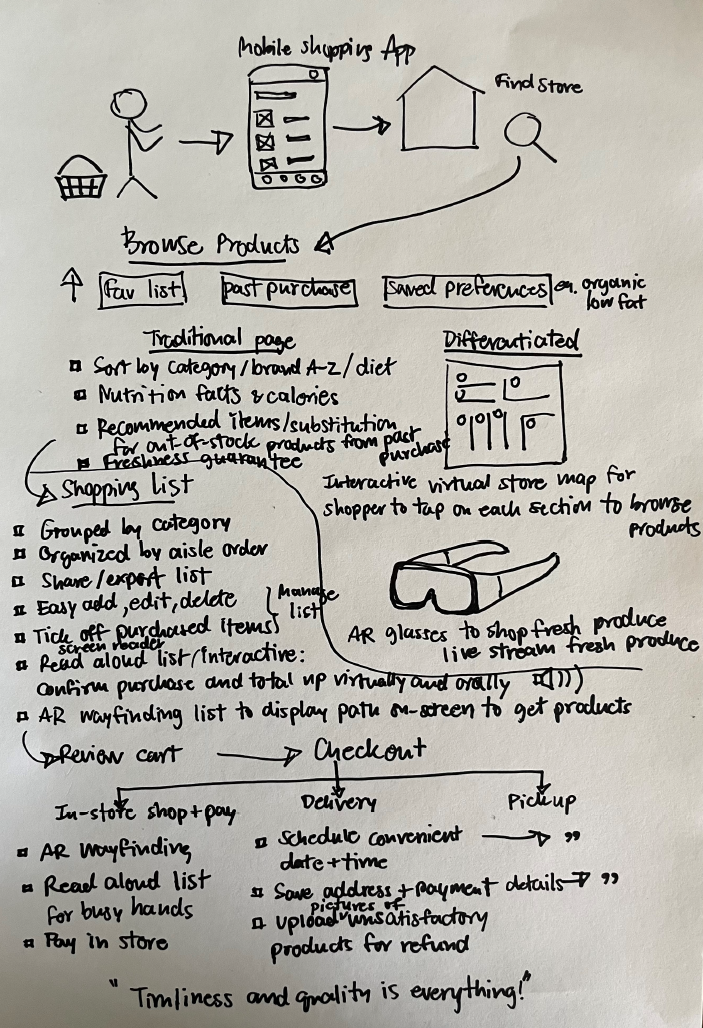 Mobile shopping App
Find Store
Browse Products
fav list
past purchase
saved preferences
eg. organic
low fat
Traditional page
Sort by category/brand A-Z/diet
Nutrition facts & calories
Recommended items/substitution
for out-of-stock products from past
purchase
Freshness guarantee
Differentiated
Interactive virtual store map for
shopper to tap on each section to browse
products
AR glasses to shop fresh produce
live stream fresh produce
Shopping list
Grouped by category
Organized by aisle order
Share/export list
Easy add, edit, delete
Tick off purchased items
Manage
list
screen reader
Read aloud list/interactive:
confirm purchase and total up virtually and orally
AR wayfinding list to display path on-screen to get products
Review cart
Checkout
In-store shop+pay
AR wayfinding
Read aloud list
for busy hands
Pay in store
Delivery
Schedule convenient
date+time
Save address + payment details
pictures of
Upload unsatisfactory
products for refund
Pickup
"
"
"Timliness and quality is everything!"